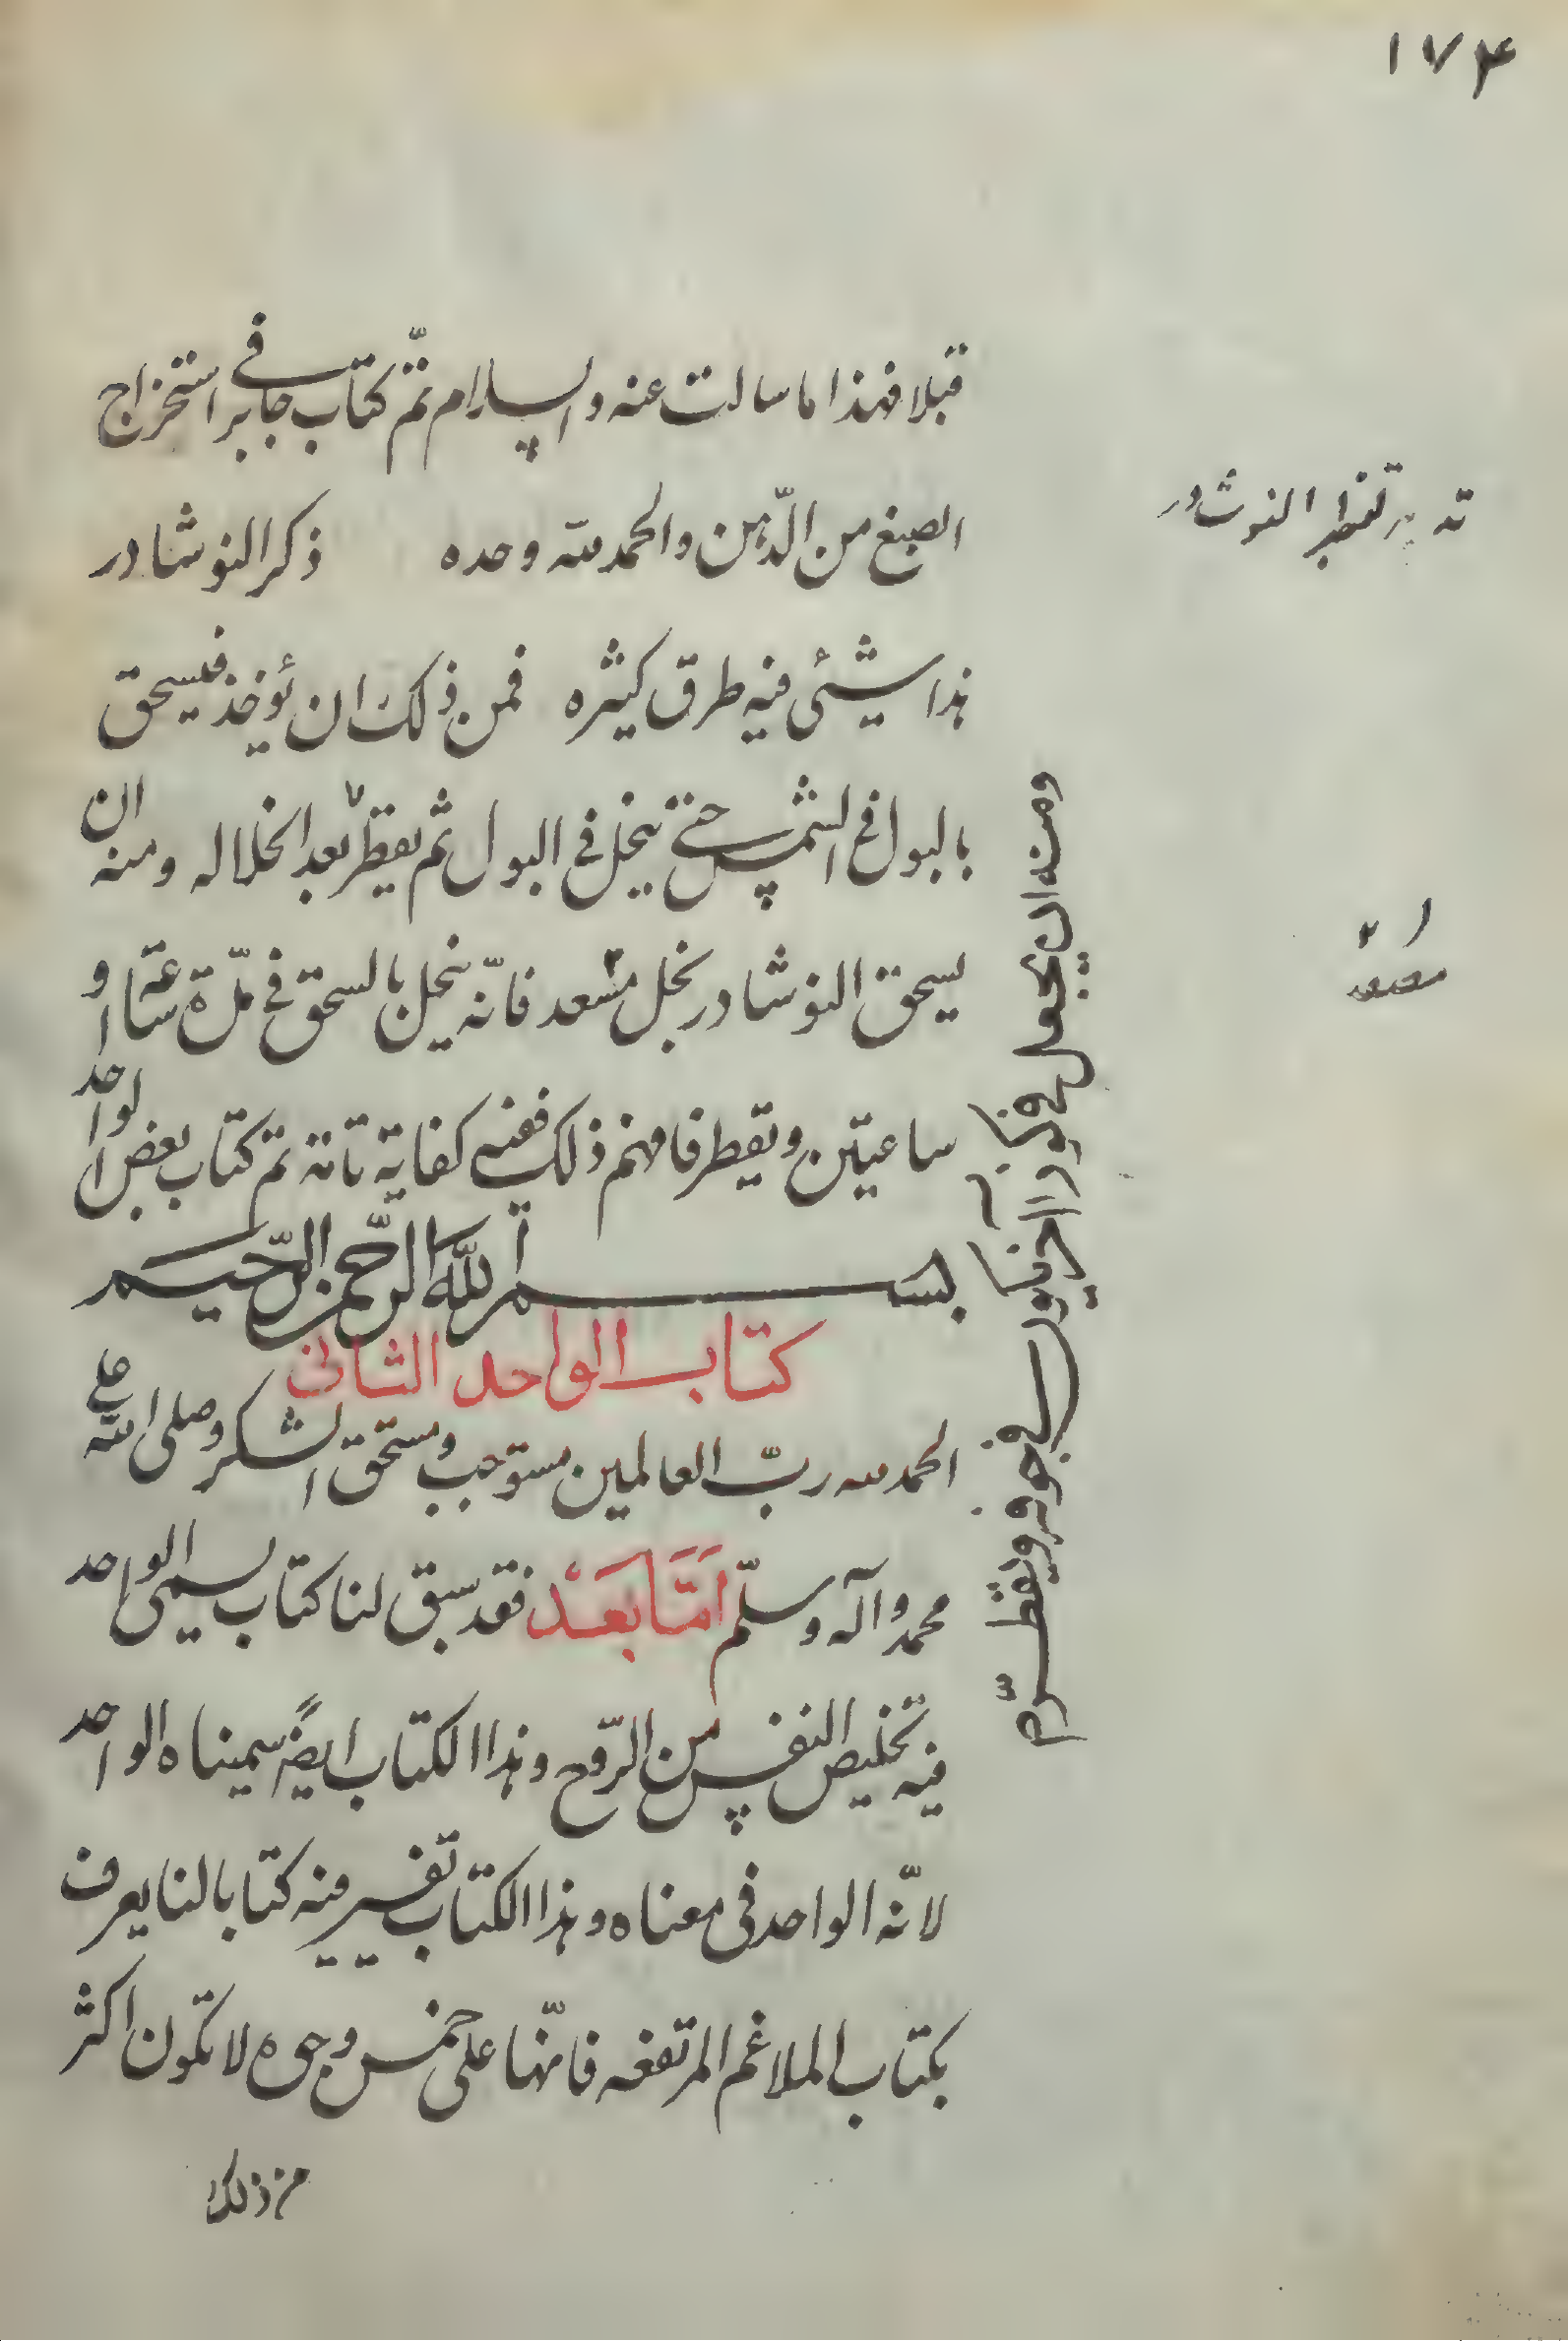 ۱۷۴
قبلا فهذا ما سالت عنه والسلام تمّ كتاب جابر في استخراج
الصبغ من الدّهن والحمد لله وحده ذكر النوشادر
تدبير تقطير النوشادر
هذا شيئى فيه طرق كثيره فمن ذلك ان يؤخذ فيسحق
بالبول في الشمس حتى ينحل في البول ثم يقطر بعد انحلاله ومنه ان
يسحق النوشادر بخل مصعد فانّه ينحل بالسحق في مدّة ساعة او
ساعتين ويقطر فافهم ذلك ففيه كفاية تامة تم كتاب بعض الواحد
ومنه ان يجعل في
في جوفه ويقطر تمّ
بسم الله الرَّحمن الرَّحيم
كتاب الواحد الثانى
الحمد لله ربّ العالمين مستوجب ومستحق الشكر وصلى الله على
محمد وآله وسلّم امَّا بعَدْ فقد سبق لنا كتاب يسمى الواحد
فيه تخليص النفس من الرّوح وهذا الكتاب ايضاً سميناه الواحد
لانّه الواحد في معناه وهذا الكتاب تفسير فيه كتابا لنا يعرف
بكتاب الملاغم المرتفعه فانّها على خمس وجوه لا تكون اكثر
من ذلك